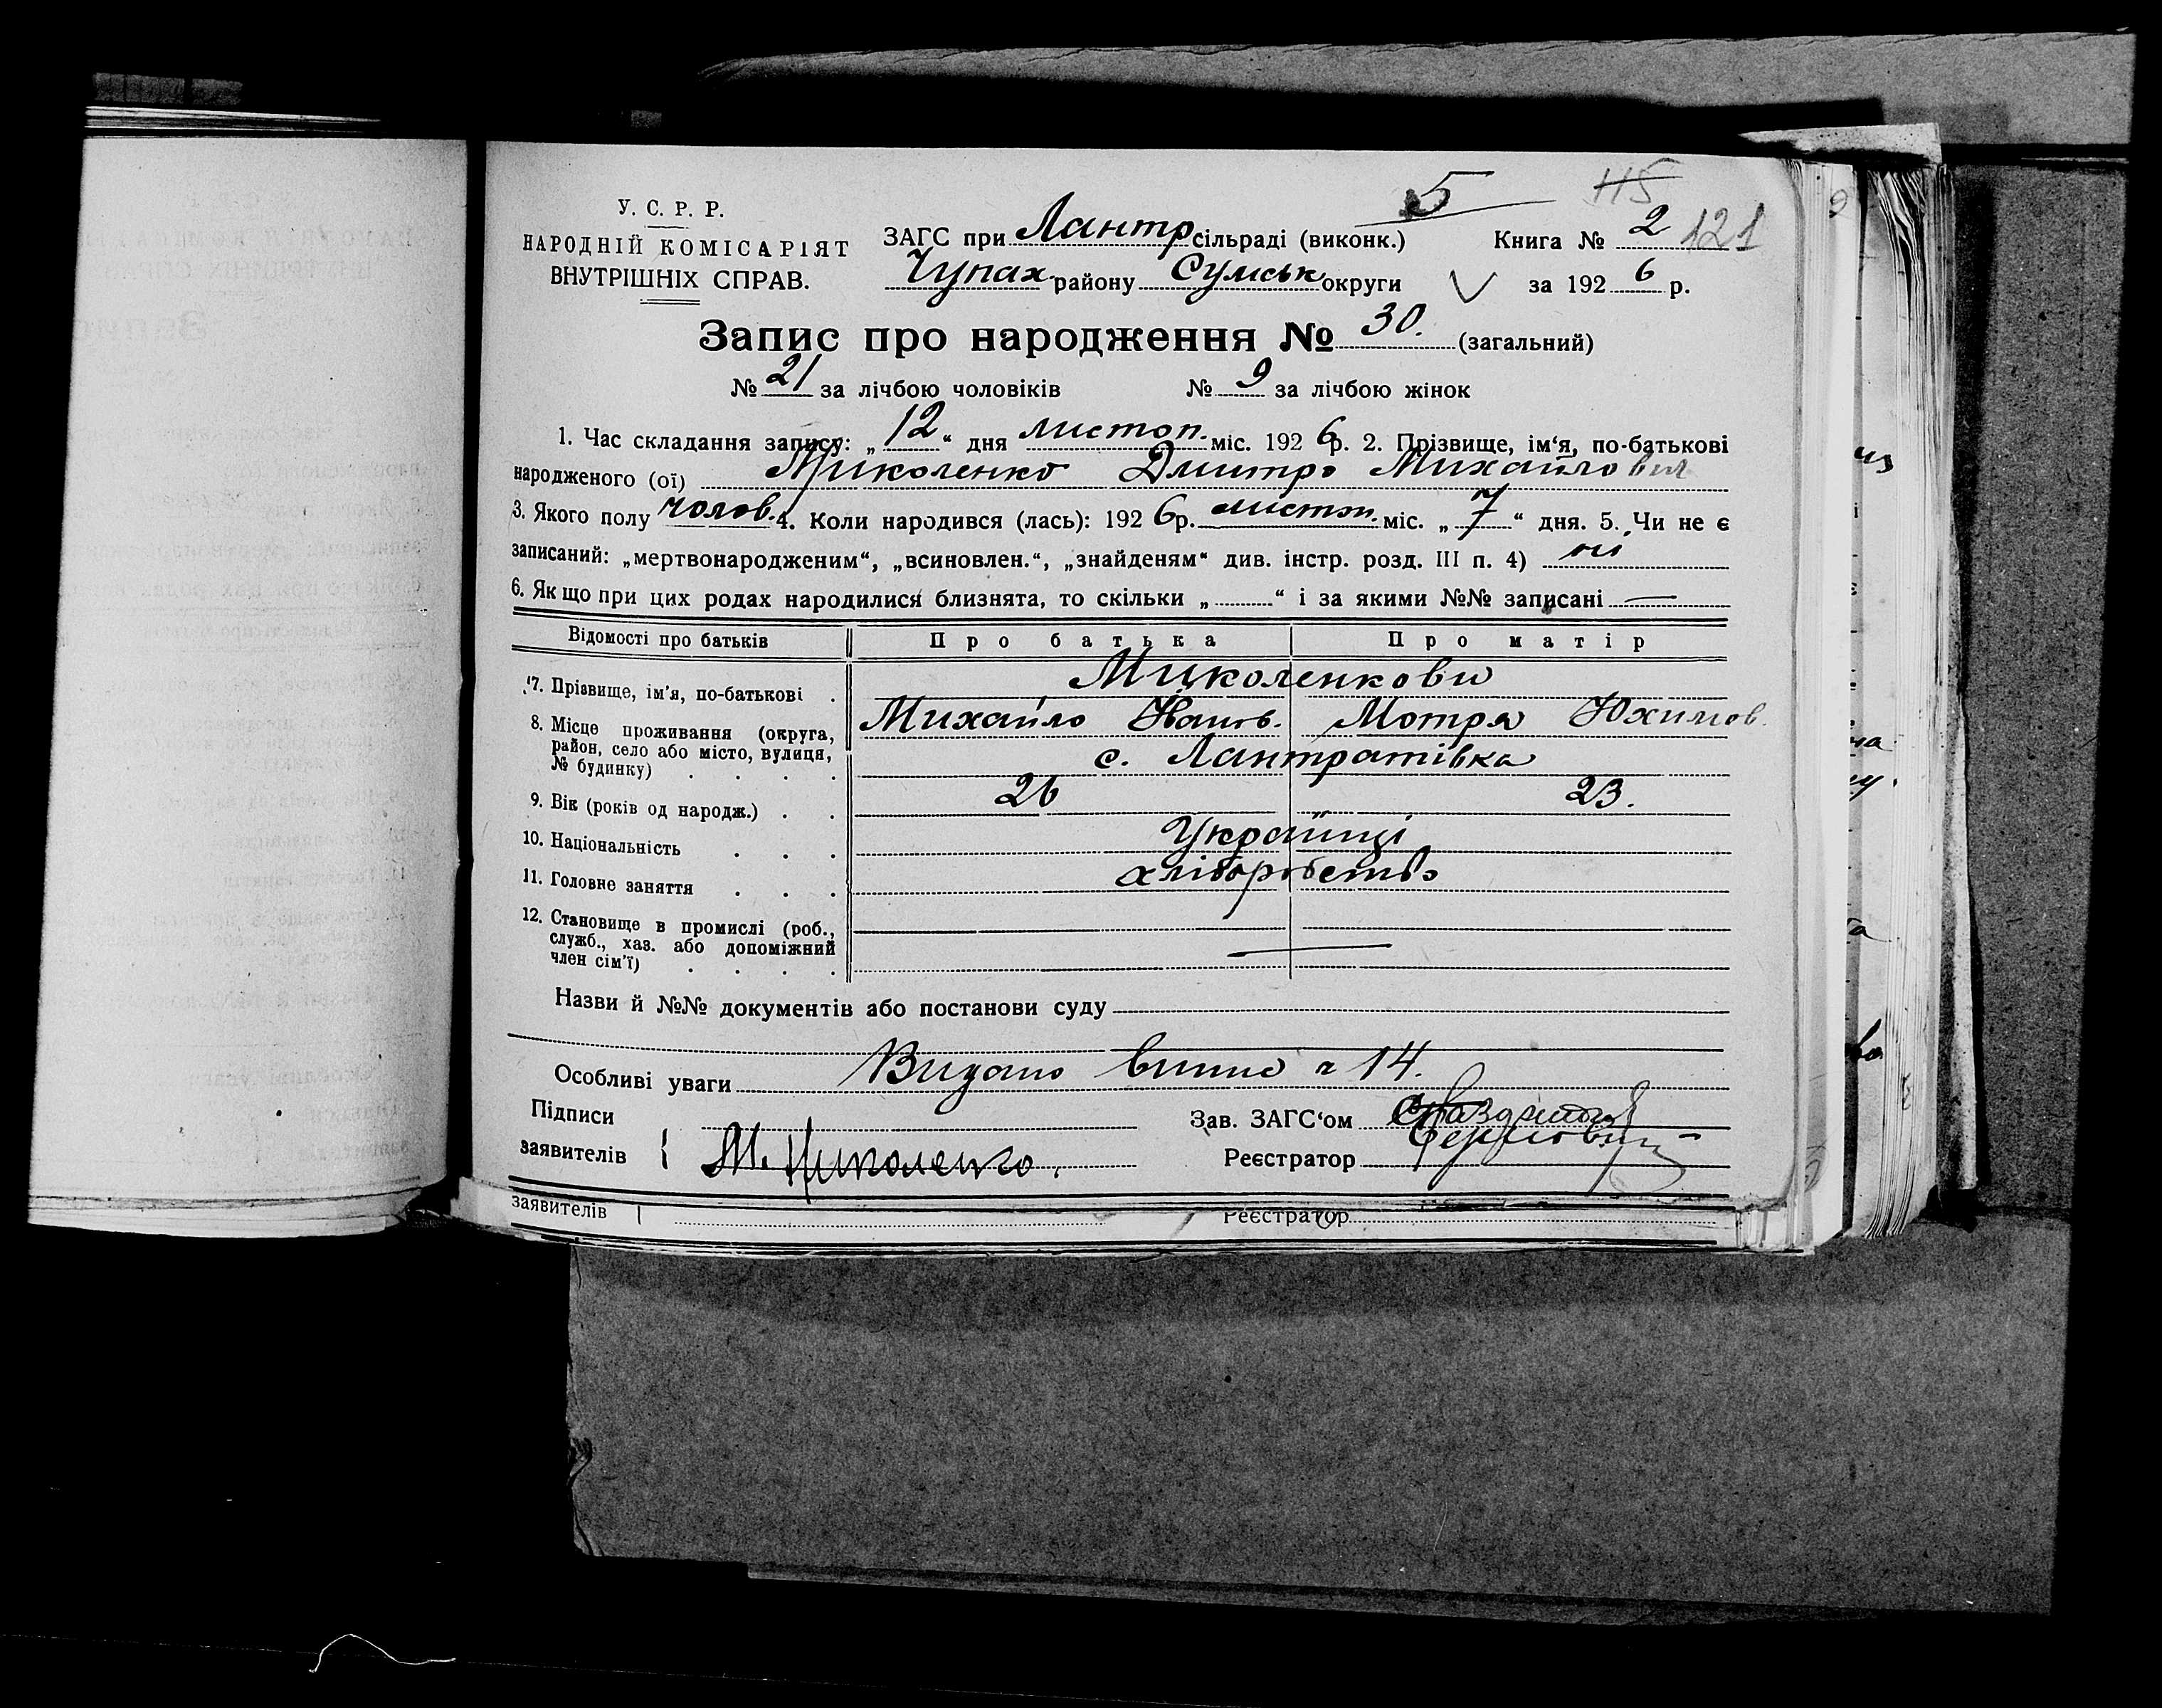 5 115
У. С. Р. Р.
НАРОДНІЙ КОМІСАРІЯТ
ВНУТРІШНІХ СПРАВ.
ЗАГС при Лантр сільраді (виконк.) Книга № 2 121
Чупах. району Сумськ округи за 1926 р.
Запис про народження № 30. (загальний)
№ 21 за лічбою чоловіків № 9 за лічбою жінок
1. Час складання запису: „12“ дня листоп. міс. 1926 р. 2. Прізвище, ім‘я, по-батькові
народженого (ої) Миколенко Дмитро Михайлович
3. Якого полу чолов. 4. Коли народився (лась): 1926 р. листоп. міс. „7“ дня. 5. Чи не є
записаний: „мертвонародженим“, „всиновлен.“, „знайденям“ див. інстр. розд. III п. 4) ні
6. Якщо при цих родах народилися близнята, то скільки „ “ і за якими №№ записані —
Відомості про батьків Про батька Про матір
7. Прізвище, ім’я, по-батькові . Миколенкови
Михайло Іванов. Мотря Юхимов.
8. Місце проживання (округа,
район, село або місто, вулиця,
№ будинку) . . . . с. Лантратівка
9. Вік (років од народж.) . . 26 23.
10. Національність . . . Українці
11. Головне заняття . . . хліборобство
12. Становище в промислі (роб.,
служб., хаз. або допоміжний
член сім’ї) . . . . —
Назви й №№ документів або постанови суду
Особливі уваги Видано 14.
Підписи Зав. ЗАГС‘ом
заявителів { М. Миколенко. Реєстратор
заявителів { Реєстратор